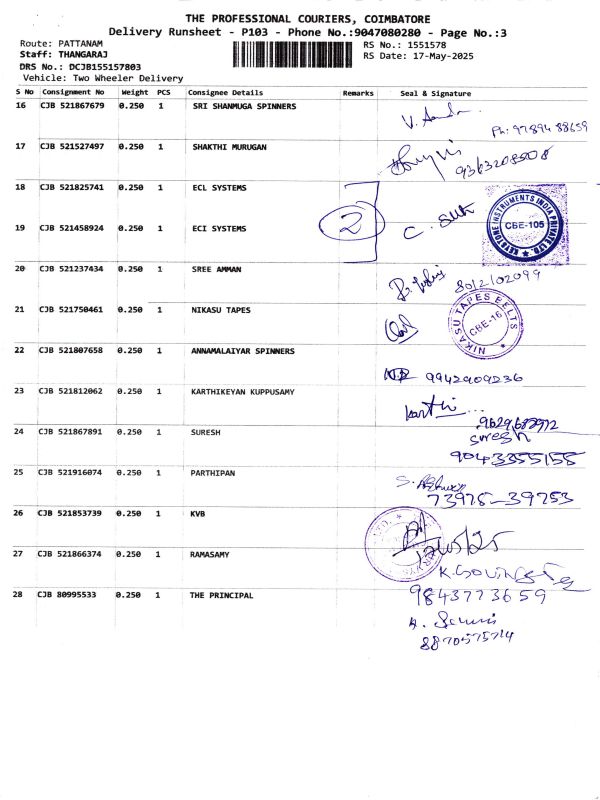 THE PROFESSIONAL COURIERS, COIMBATORE
Delivery Runsheet - P103 - Phone No.:9047080280 - Page No.:3
Route: PATTANAM RS No.: 1551578
Staff: THANGARAJ RS Date: 17-May-2025
DRS No.: DCJB155157803
Vehicle: Two Wheeler Delivery
S No Consignment No Weight PCS Consignee Details Remarks Seal & Signature
16 CJB 521867679 0.250 1 SRI SHANMUGA SPINNERS
Ph: 97894 88659
17 CJB 521527497 0.250 1 SHAKTHI MURUGAN
9363208508
18 CJB 521825741 0.250 1 ECL SYSTEMS
2
KEYSTONE INSTRUMENTS INDIA PRIVATE LTD
CBE-105
19 CJB 521458924 0.250 1 ECI SYSTEMS
20 CJB 521237434 0.250 1 SREE AMMAN
21 CJB 521750461 0.250 1 NIKASU TAPES
NIKASU TAPES BELTS
CBE-16
22 CJB 521807658 0.250 1 ANNAMALAIYAR SPINNERS
9942909236
23 CJB 521812062 0.250 1 KARTHIKEYAN KUPPUSAMY
karthi...
24 CJB 521867891 0.250 1 SURESH
suresh
9043355155
25 CJB 521916074 0.250 1 PARTHIPAN
73975-39753
26 CJB 521853739 0.250 1 KVB
27 CJB 521866374 0.250 1 RAMASAMY
9843773659
28 CJB 80995533 0.250 1 THE PRINCIPAL
8870575714